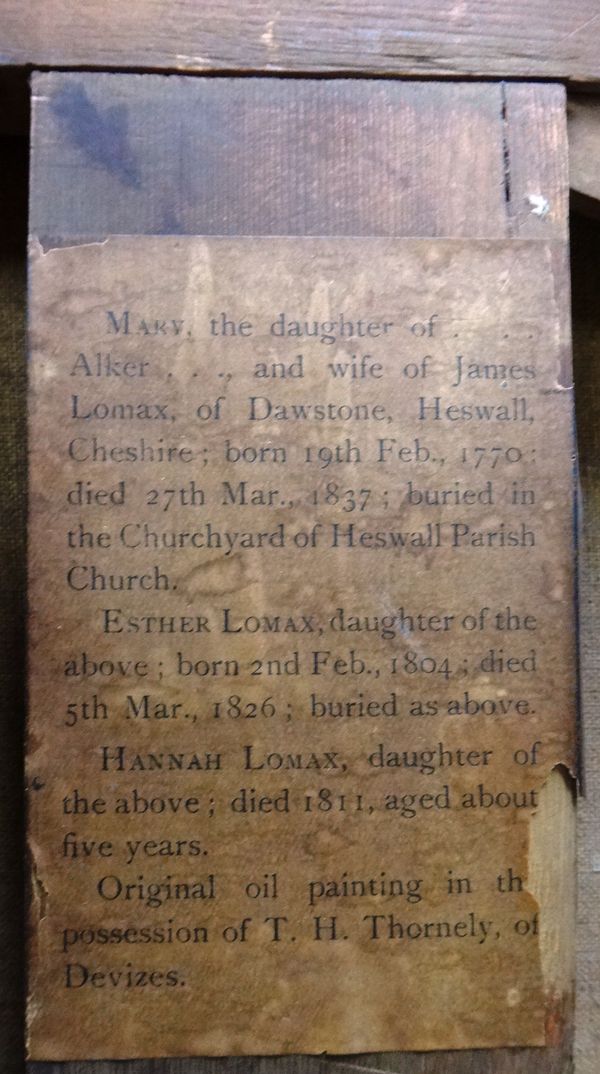 MARY, the daughter of . . . .
Alker . . ., and wife of James
Lomax, of Dawstone, Heswall,
Cheshire; born 19th Feb., 1770;
died 27th Mar., 1837; buried in
the Churchyard of Heswall Parish
Church.
ESTHER LOMAX, daughter of the
above; born 2nd Feb., 1804; died
5th Mar., 1826; buried as above.
HANNAH LOMAX, daughter of
the above; died 1811, aged about
five years.
Original oil painting in th
possession of T. H. Thornely, of
Devizes.